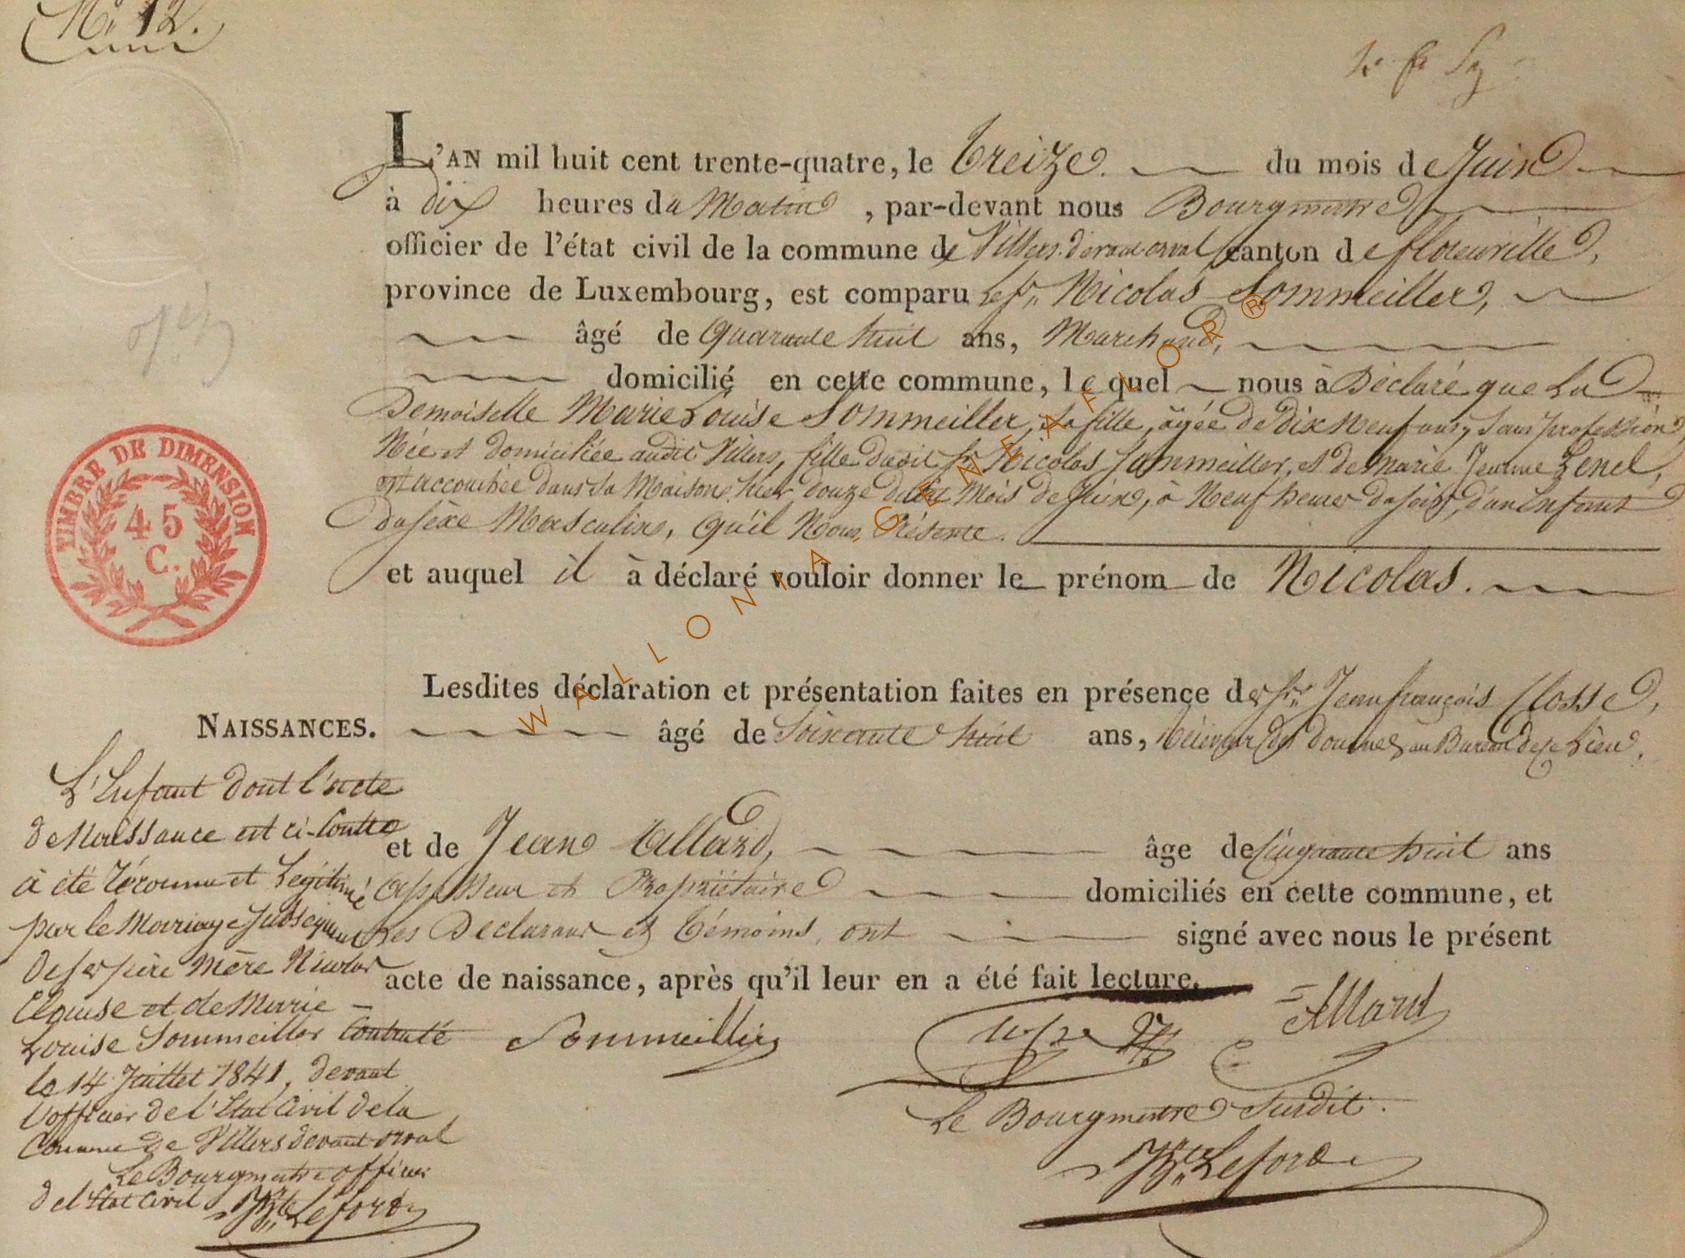 N° 12.
L'AN mil huit cent trente-quatre, le treize du mois de Juin
à dix heures du Matin, par-devant nous Bourgmestre
officier de l'état civil de la commune de Villers-devant-orval canton de florenville,
province de Luxembourg, est comparu le Sr. Nicolas Sommeiller,
âgé de Quarante huit ans, Marchand,
domicilié en cette commune, lequel nous à Déclaré que La
Demoiselle Marie Louise Sommeiller, sa fille, âgée de Dix Neuf ans, Sans profession,
Née et domiciliée audit Villers, fille dudit Sr Nicolas Sommeiller, et de Marie Jeanne Zenel,
est accouchée dans sa Maison, hier douze dudit Mois de Juin, à Neuf heures du soir, d'un Enfant
du sèxe Masculin, qu'il Nous Présente.
et auquel il à déclaré vouloir donner le prénom de Nicolas.
Lesdites déclaration et présentation faites en présence de Sr. Jean françois Closse,
NAISSANCES.
âgé de Soixante huit ans, Receveur des douanes au Bureau de ce Lieu,
et de Jean Allard, âge de Cinquante huit ans
Assesseur et Propriétaire domiciliés en cette commune, et
Les Déclarant et témoins, ont signé avec nous le présent
acte de naissance, après qu'il leur en a été fait lecture.
Sommeiller
Allard
Le Bourgmestre Susdit.
Leforé
L'Enfant dont l'acte
de Naissance est ci-Contre
à été Réconnu et Légitimé
par le Mariage Subséquent
de ses père Mère Nicolas
et de Marie
Louise Sommeiller Contracté
le 14 Juillet 1841, devant
l'officier de l'Etat Civil de la
Commune de Villers devant orval
Le Bourgmestre officier
de l'Etat Civil
Leforé
TIMBRE DE DIMENSION
45
C.
WALLONIA-GENEAFLOR®